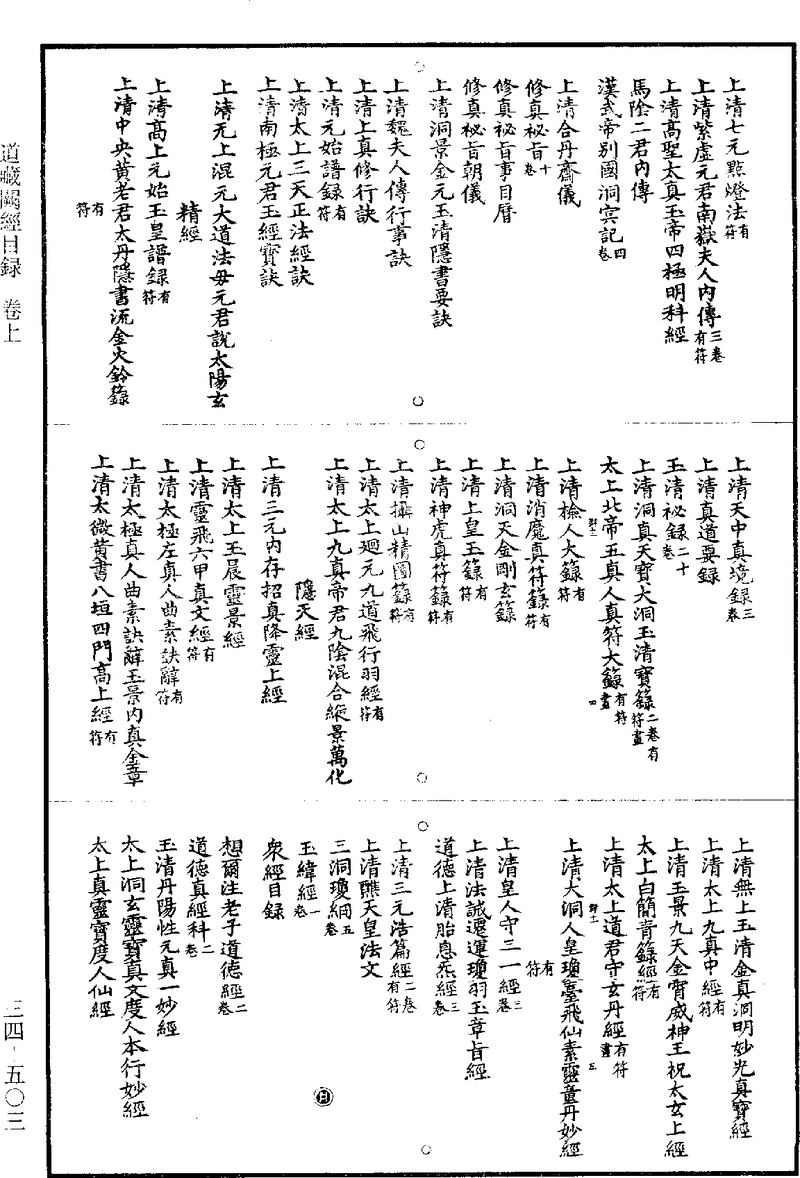 上清七元點燈法有符
上清紫虛元君南嶽夫人內傳三卷有符
上清高聖太真玉帝四極明科經
馬陰二君內傳
漢武帝別國洞冥記四卷
上清合丹齋儀
修真祕旨十卷
修真祕旨事目曆
修真祕旨朝儀
上清洞景金元玉清隱書要訣
上清魏夫人傳行事訣
上清上真修行訣
上清元始譜録有符
上清太上三天正法經訣
上清南極元君玉經寶訣
上清元上混元大道法母元君說太陽玄
精經
上清高上元始玉皇譜録有符
上清中央黃老君太丹隱書流金火鈴籙
有符
上清天中真境録三卷
上清真道要録
玉清祕録二十卷
上清洞真天寶大洞玉清寶籙二卷有符畫
太上北帝五真人真符大籙有符畫
上清檢人大籙有符
上清消魔真符籙有符
上清洞天金剛玄籙
上清上皇玉籙有符
上清神虎真符籙有符
上清攝山精圖籙有符
上清太上廻元九道飛行羽經有符
上清太上九真帝君九陰混合縱景萬化
隱天經
上清三元內存招真降靈上經
上清太上玉晨靈景經
上清靈飛六甲真文經有符
上清太極左真人曲素訣辭有符
上清太極真人曲素訣辭玉景內真金章
上清太微黃書八垣四門高上經有符
上清無上玉清金真洞明妙光真寶經
上清太上九真中經有符
上清玉景九天金霄威神王祝太玄上經
太上白簡青籙經有符
上清太上道君守玄丹經有符畫
上清大洞人皇瓊臺飛仙素靈童丹妙經
有符
上清皇人守三一經三卷
上清法誡還運瓊羽玉章旨經
道德上清胎息炁經三卷
上清三元浩篇經二卷有符
上清醮天皇法文
三洞瓊綱五卷
玉緯經一卷
衆經目録
想爾注老子道德經二卷
道德真經科二卷
玉清丹陽性元真一妙經
太上洞玄靈寶真文度人本行妙經
太上真靈寶度人仙經
道藏闕經目録　卷上
三四-五〇三